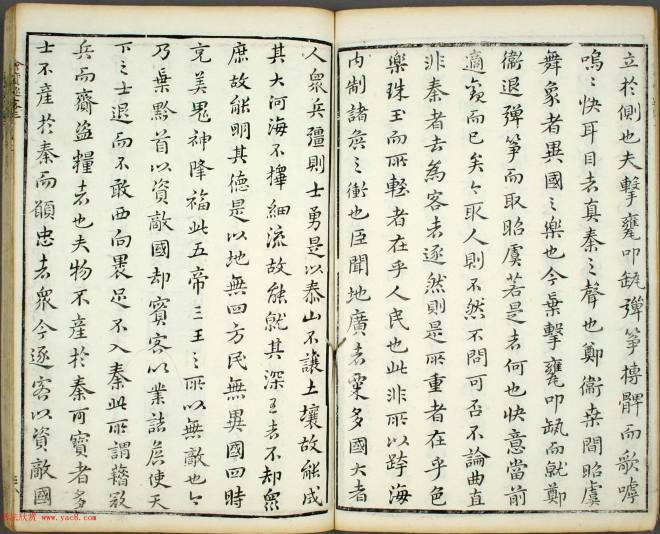 立於側也夫擊甕叩缻彈箏搏髀而歌嘑
嗚〻快耳目者真秦之聲也鄭衞桒間昭虞
舞象者異國之樂也今棄擊甕叩缻而就鄭
衞退彈箏而取昭虞若是者何也快意當前
適觀而已矣今取人則不然不問可否不論曲直
非秦者去為客者逐然則是所重者在乎色
樂珠玉而所輕者在乎人民也此非所以跨海
內制諸矦之術也臣聞地廣者粟多國大者
人眾兵彊則士勇是以泰山不讓土壤故能成
其大河海不擇細流故能就其深王者不却眾
庶故能明其德是以地無四方民無異國四時
充美鬼神降福此五帝三王之所以無敵也今
乃棄黔首以資敵國却賓客以業諸矦使天
下之士退而不敢西向裹足不入秦此所謂藉寇
兵而齎盜糧者也夫物不產於秦可寶者多
士不產於秦而願忠者眾今逐客以資敵國
书法欣赏 www.yac8.com